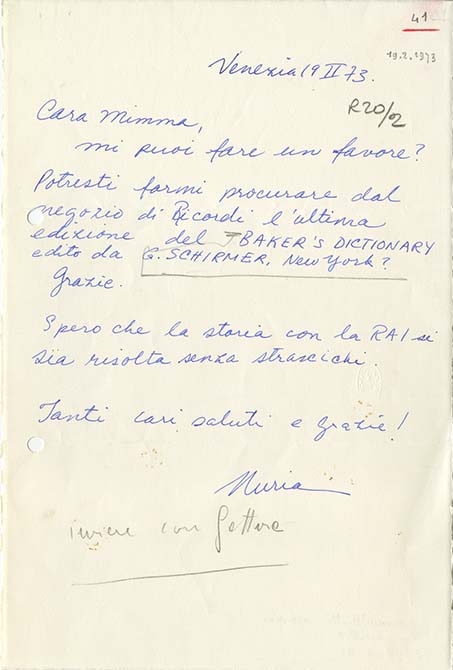 41
19.2.1973
Venezia 19 II 73.
R20/2
Cara Mimma,
mi puoi fare un favore?
Potresti farmi procurare dal
negozio di Ricordi l'ultima
edizione del BAKER'S DICTIONARY
edito da G. SCHIRMER, New York?
Grazie.
Spero che la storia con la RAI si
sia risolta senza strascichi.
Tanti cari saluti e grazie!
Nuria
con